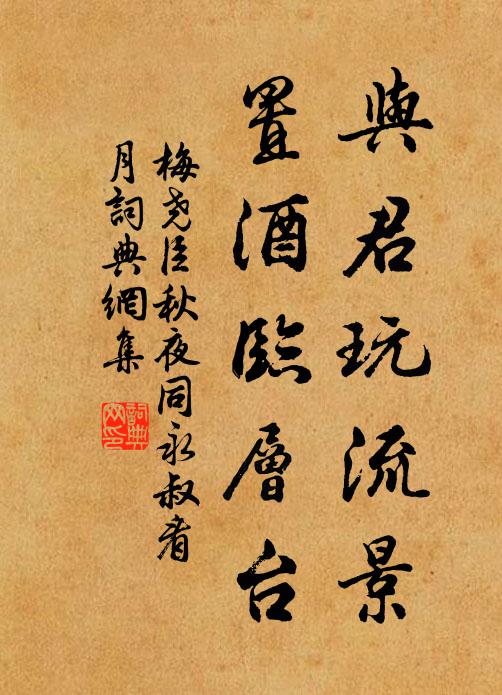 與君玩流景
置酒臨層台
梅堯臣秋夜同永叔看
月詞典網集
詞典
网印